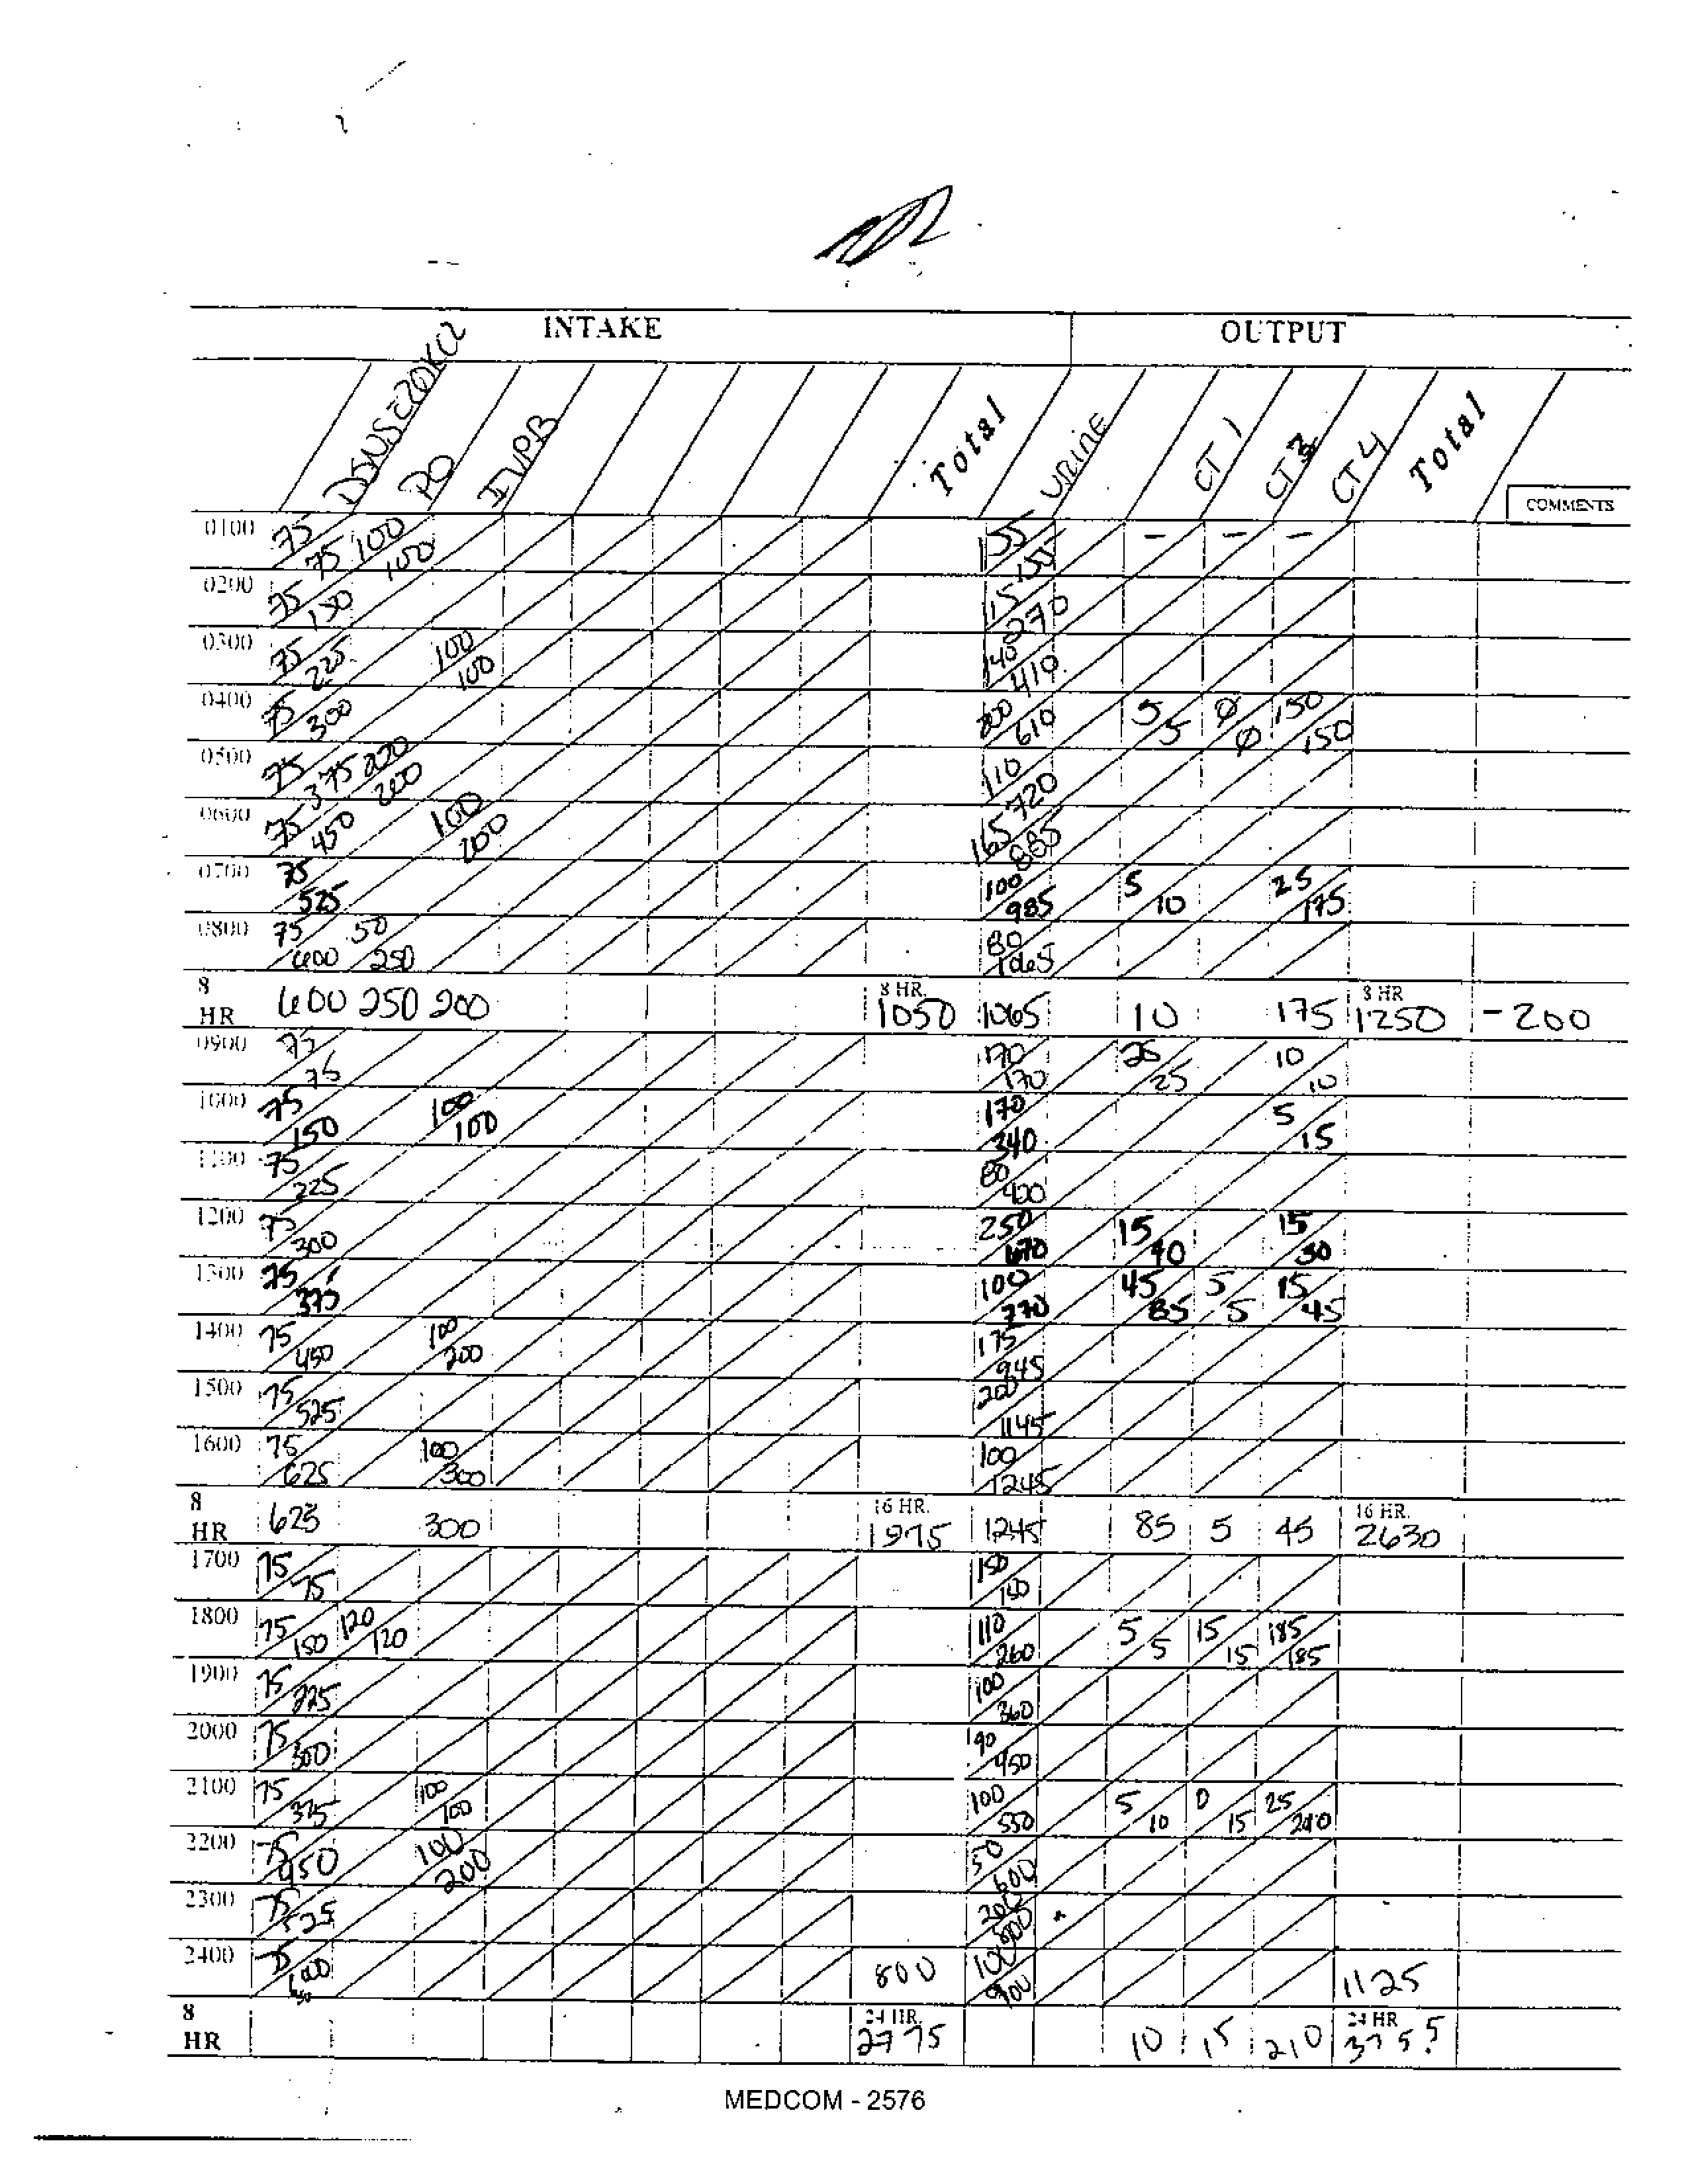 INTAKE OUTPUT
PO IVPB Total URINE CT 1 CT 3 CT 4 Total
COMMENTS
0100 75 75 100 100 155 155 - - -
0200 75 150 115 270
0300 75 225 100 100 140 410
0400 75 300 200 610 5 5 Ø Ø 150 150
0500 75 375 200 200 110 720
0600 75 450 100 200 165 885
0700 75 525 100 985 5 10 25 175
0800 75 600 50 250 80 1065
8 HR 600 250 200 8 HR. 1050 1065 10 175 8 HR 1250 -200
0900 75 75 170 170 25 25 10 10
1000 75 150 100 100 170 340 5 15
1100 75 225 80 420
1200 75 300 250 670 15 40 15 30
1300 75 375 100 770 45 85 5 5 15 45
1400 75 450 100 200 175 945
1500 75 525 200 1145
1600 75 625 100 300 100 1245
8 HR 625 300 16 HR. 1975 1245 85 5 45 16 HR. 2630
1700 75 75 150 150
1800 75 150 120 120 110 260 5 5 15 15 185 185
1900 75 225 100 360
2000 75 300 90 450
2100 75 375 100 100 100 550 5 10 0 15 25 210
2200 75 450 100 200 50 600
2300 75 525 200 800
2400 75 600 800 100 900 1125
8 HR 24 HR. 2775 10 15 210 24 HR 3755
MEDCOM - 2576